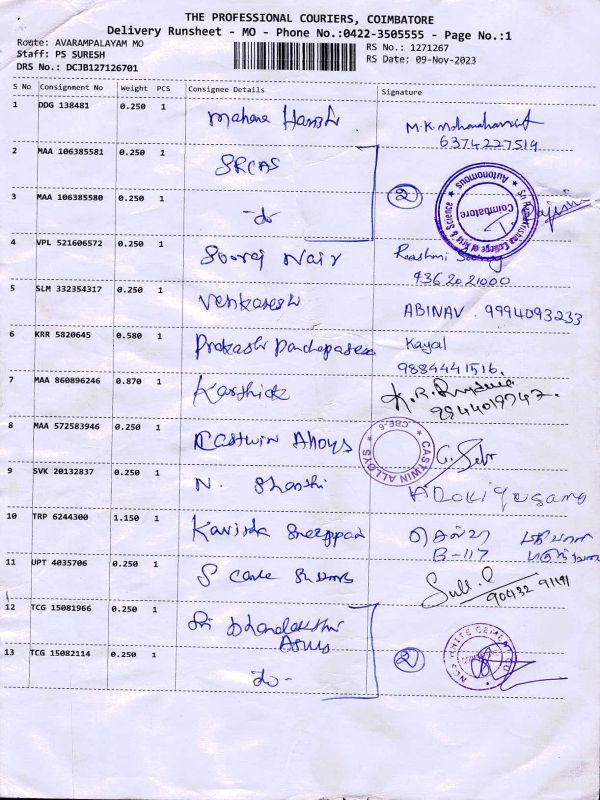 THE PROFESSIONAL COURIERS, COIMBATORE
Delivery Runsheet - MO - Phone No.:0422-3505555 - Page No.:1
Route: AVARAMPALAYAM MO
Staff: PS SURESH
DRS No.: DCJB127126701
RS No.: 1271267
RS Date: 09-Nov-2023
S No Consignment No Weight PCS Consignee Details Signature
1 DDG 138481 0.250 1
6374227519
2 MAA 106385581 0.250 1 SRCAS
3 MAA 106385580 0.250 1 -do- 2
Sri Ramakrishna College of Arts & Science ★ Autonomous ★ Coimbatore
4 VPL 521606572 0.250 1 Sooraj Nair Raashmi Sooraj
9362021000
5 SLM 332354317 0.250 1 Venkatesh ABINAV . 9994093233
6 KRR 5820645 0.580 1 Prakash Kayal
9884441516.
7 MAA 860896246 0.870 1 Karthick
8 MAA 572583946 0.250 1 Castwin Alloys
★ CASTWIN ALLOYS ★ CBE-6
9 SVK 20132837 0.250 1 N. Shanthi
10 TRP 6244300 1.150 1 Kavitha
B-117
11 UPT 4035706 0.250 1 S care
90432 91191
12 TCG 15081966 0.250 1 Sri Dhanalakshmi
13 TCG 15082114 0.250 1 do- 2
WHITE CEMENT